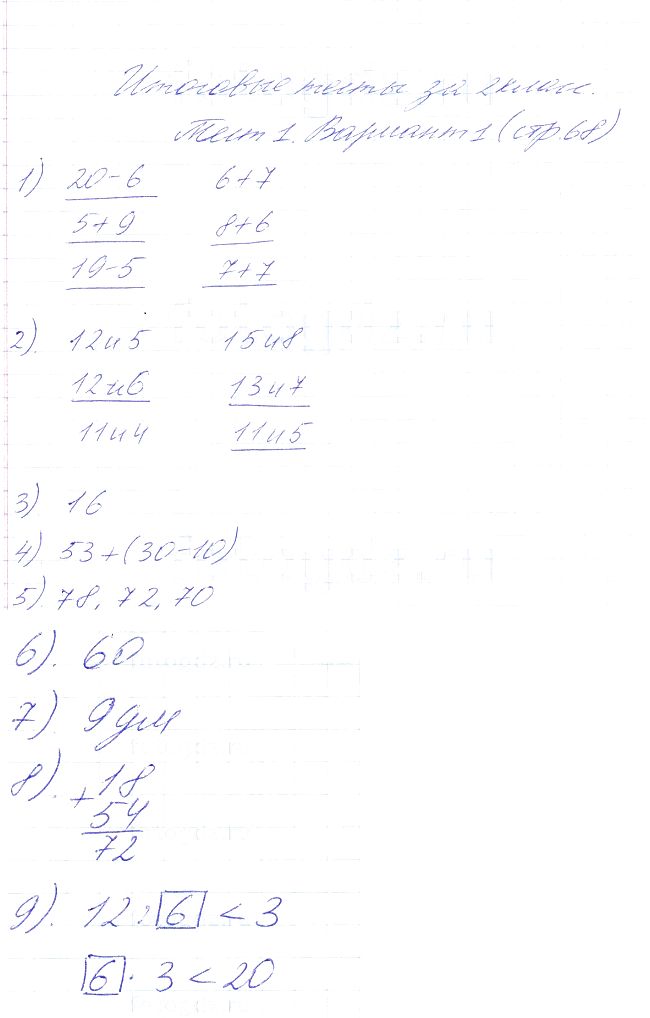 Итоговые тесты за 2 класс.
Тест 1. Вариант 1 (стр 68)
1) 20-6 6+7
5+9 8+6
19-5 7+7
2). 12и5 15и8
12и6 13и7
11и4 11и5
3) 16
4) 53+(30-10)
5) 78, 72, 70
6). 60
7) 9дм
8). +18
54
72
9). 12:6 <3
6· 3<20